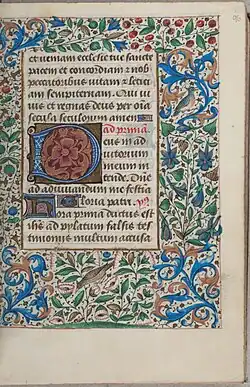 et veniam ecclesie tue sancte
pacem et concordiam z nob
peccatoribus vitam z leticī
am sempiternam. Qui vi
vis et regnas deus per oīa
secula seculorum amen
ad prima
Deus in ad
iutorium
meum in
tende. Dne
ad adiuvandum me festia
Gloria patri.
Hora prima ductus est
ihs ad pylatum falsis tes
timoniis multum accusa